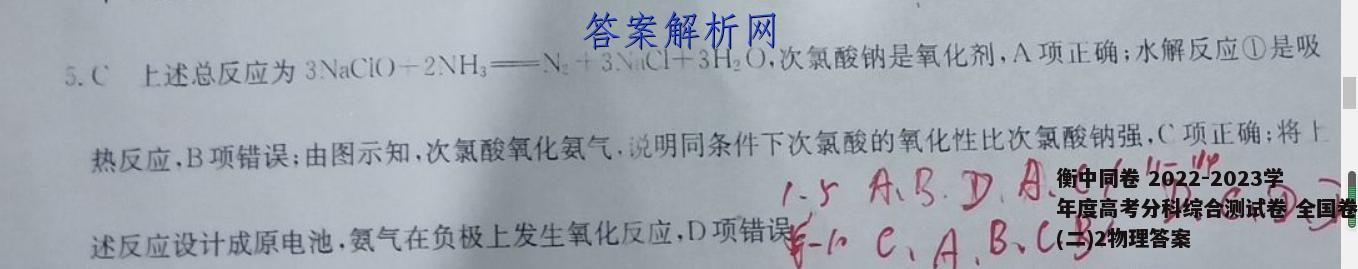 答案解析网
5.C 上述总反应为 3NaClO+2NH₃══N₂+3NaCl+3H₂O,次氯酸钠是氧化剂,A项正确;水解反应①是吸
热反应,B项错误;由图示知,次氯酸氧化氨气,说明同条件下次氯酸的氧化性比次氯酸钠强,C项正确;将上
述反应设计成原电池,氨气在负极上发生氧化反应,D项错误
1-5 A、B、D、A、
衡中同卷 2022-2023学
年度高考分科综合测试卷 全国卷
(二)2物理答案
6-10 C、A、B、C